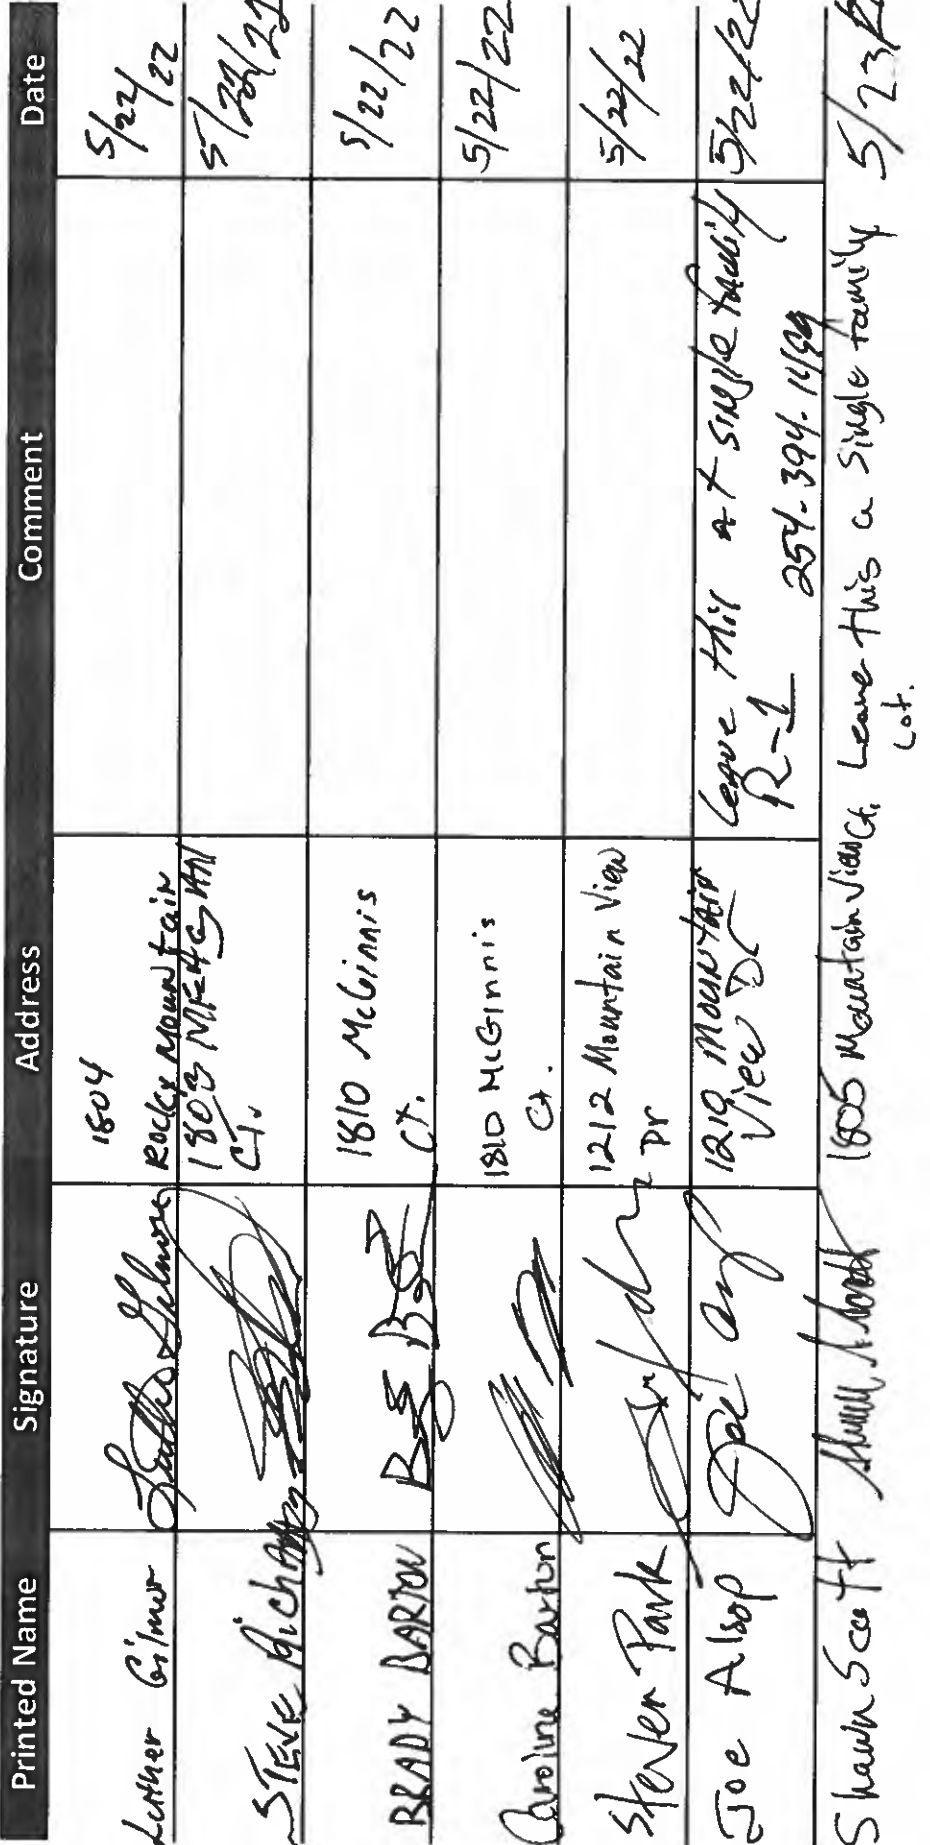 Printed Name Signature Address Comment Date
Luther Gilmor Luther Gilmore 1804 Rocky Mountain 5/22/22
Steve 1803 Ct. 5/22/22
BRADY BARTON 1810 McGinnis Ct. 5/22/22
Caroline Barton 1810 McGinnis Ct. 5/22/22
Steven Park 1212 Mountain View Dr 5/22/22
Joe Alsop Joe 1219 Mountain View Dr Leave this at single family 5/22/22
R-1 254-394-1499
Shawn Scott Shawn Scott 1805 Mountain View Ct. Leave this a single family 5/23/
Lot.